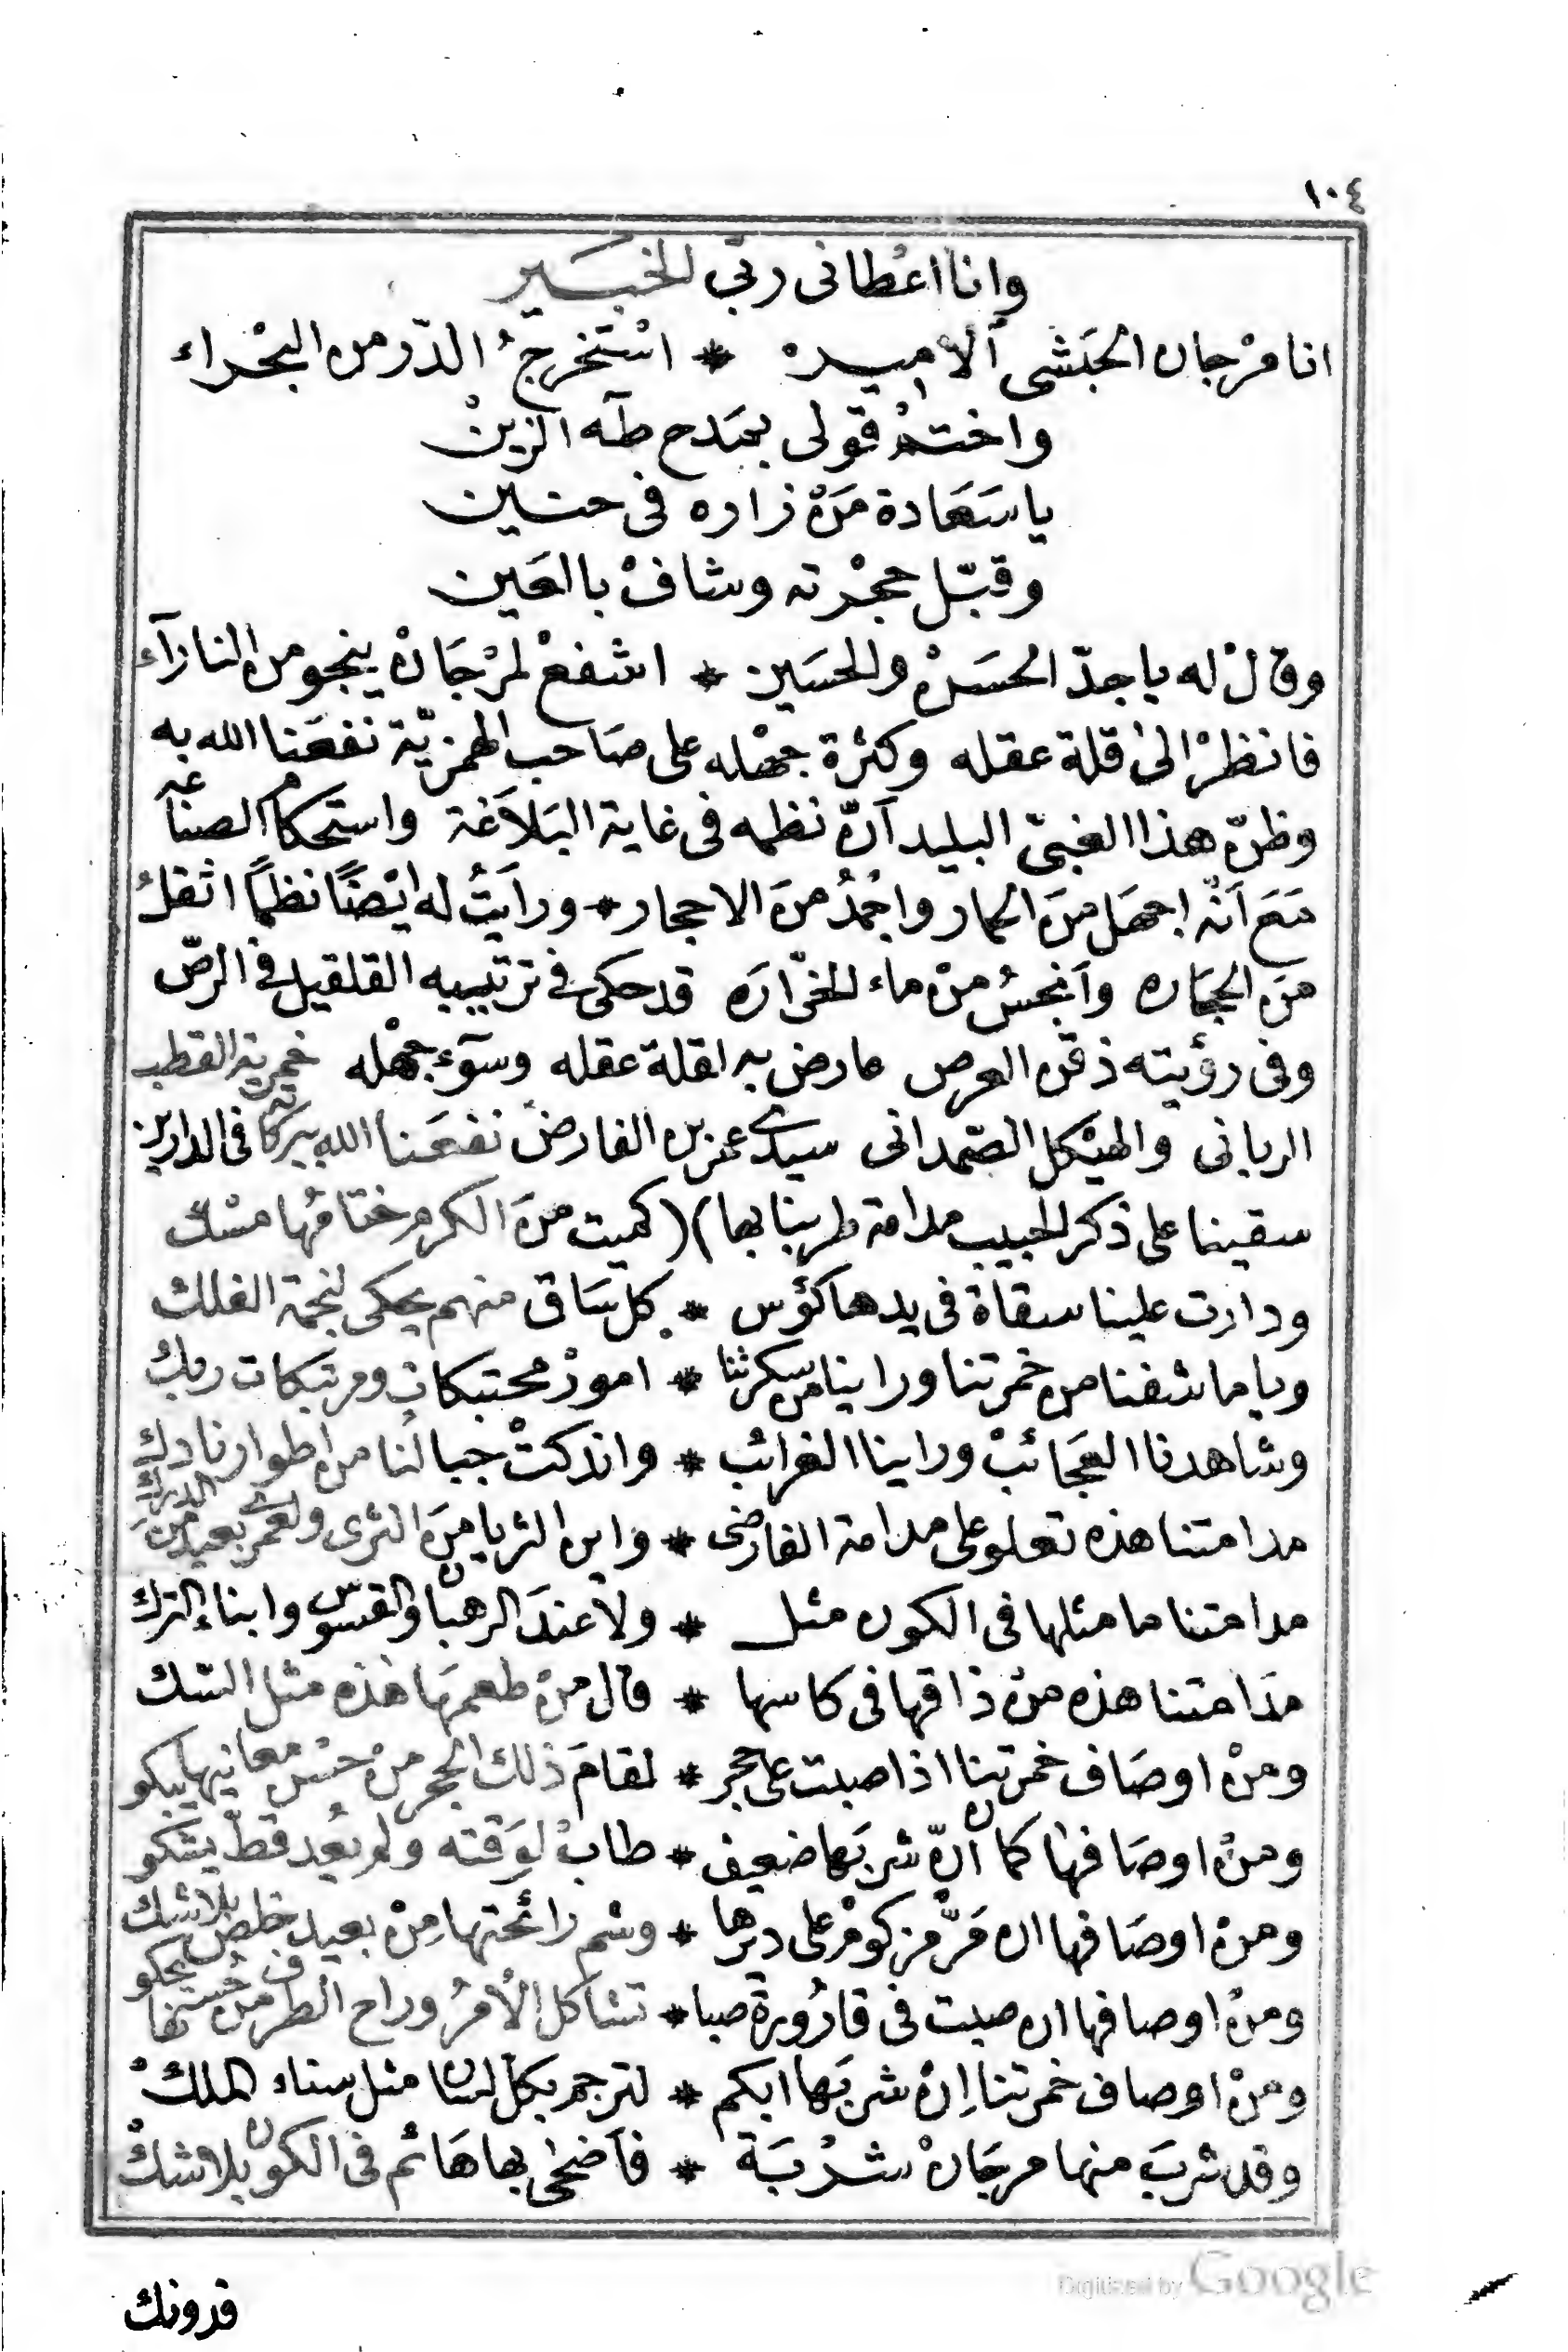 ١٠٤
وانا اعْطانى ربّى الخبَير
انا مرْجان الحبَشى الاميرْ * اسْتخرجُ الدّر من البحْراء
واختمْ قولى بمَدح طَه الزينْ
يا سَعَادة مَنْ زاره فى حنين
وقبّل حجْرته وشافْ بالعَين
وقالْ له يا جدّ الحسَنْ والحسَين * اشفعْ لمرْجَانْ ينجو من النارآء
فانظرْ الىْ قلة عقله وكثرة جهْله على صَاحب الهمزيّة نفعَنا الله به
وظنّ هذا الغبىّ البليد اَنّ نظمه فى غاية البَلاَغة واستحكام الصناعه
مَع اَنّه اجهَل منَ الحمار واجْمدُ منَ الاحجار * ورأيتُ له ايْضًا نظمًا اثقلُ
منَ الحجَاره وأنجسُ منْ ماء الخرّارَه قد حكى فى ترتيبه القلقيل فى الرصّ
وفى رؤيته ذقن العرص عارض به لقلة عقله وسوٓء جهْله خمرية القطب
الربانى والهيْكل الصّمدانى سيدى عمر بن الفارض نفعَنا الله ببركاته فى الدارين
سقينا على ذكر الحبيب مدامة طربنا بها )( كميت منَ الكرم ختامُها مسْك
ودارت علينا سقاة فى يدها كؤس * كل سَاقى منهم يحكى لنجمة الفلك
ويا ما شفنا من خمرتنا وراينا من سكرتنا * امورْ محتبكات ومرتبكات ربكْ
وشاهدنا العجَائبْ وراينا الغرائب * واندكتْ جبالنا من اطوارنا دك
مدامتنا هذه تعلو على مدامة الفارضى * واين الثريا منَ الثرى ولعمرى بعيد منَ الدرك
مدامتنا ما مثلها فى الكون مثل * ولاَ عندَ الرهبان والقسوس وابناء الترك
مدَامتنا هذه منْ ذاقها فى كاسها * قال منْ طعمهَا هذه مثل السّك
ومنْ اوصَاف خمرتنا اذا صبت على حجر * لقامَ ذلك الحجر منْ حسْن معانيها يبكو
ومنْ اوصَافها كمان انّ شربَها ضعيف * طابْ لوَقته ولم يُعد قطّ يشكو
ومنْ اوصَافها ان مَرّ مزكومْ على ديرها * وشم رائحتها مِنْ بعيد خلص بلا شك
ومنْ اوصافها ان صبت فى قارُورة صبا * تشاكل الأمرُ وراح الطرف منْ حُسنها يحكو
ومنْ اوصاف خمرتنا اِنْ شربَها ابكم * لترجم بكل لسان مثل ستاء الملكْ
وقد شربَ منها مرجَانْ شرْبَة * فاَضحٰى بها هَائم فى الكون بلا شكْ
قدونك
Digitized by Google